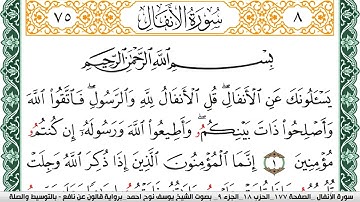 ٧٥ سُورَةُ الأَنفَال ٨
بِسْمِ اللَّهِ الرَّحْمَٰنِ الرَّحِيمِ
يَسْـَٔلُونَكَ عَنِ الْأَنفَالِ قُلِ الْأَنفَالُ لِلَّهِ وَالرَّسُولِ فَاتَّقُوا اللَّهَ
وَأَصْلِحُوا ذَاتَ بَيْنِكُمْ وَأَطِيعُوا اللَّهَ وَرَسُولَهُ إِن كُنتُمُ
مُؤْمِنِينَ ١ إِنَّمَا الْمُؤْمِنُونَ الَّذِينَ إِذَا ذُكِرَ اللَّهُ وَجِلَتْ
سورة الأنفال _ الصفحة ١٧٧ _ الحزب ١٨ _ الجزء ٩ _ بصوت الشيخ يوسف نوح أحمد _ برواية قالون عن نافع - بالتوسيط والصلة